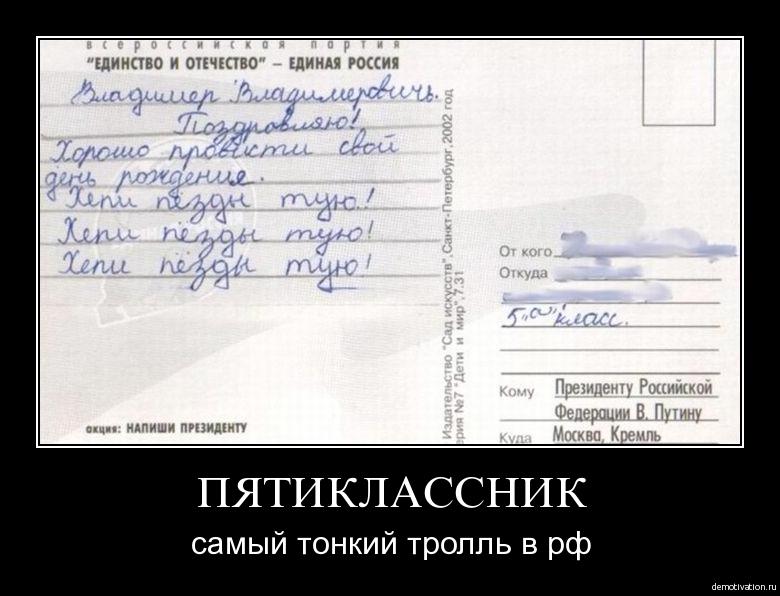 всероссийская партия
"ЕДИНСТВО И ОТЕЧЕСТВО" – ЕДИНАЯ РОССИЯ
Владимер Владимеровичь.
Поздровляю!
Хорошо провисти свой
день рождения.
Хепи пёзды тую!
Хепи пёзды тую!
Хепи пёзды тую!
акция: НАПИШИ ПРЕЗИДЕНТУ
Издательство "Сад искусств", Санкт-Петербург, 2002 год
ерия №7 "Дети и мир", 7.31
От кого
Откуда
5 „а" класс.
Кому Президенту Российской
Федерации В. Путину
Куда Москва, Кремль
ПЯТИКЛАССНИК
самый тонкий тролль в рф
demotivation.ru